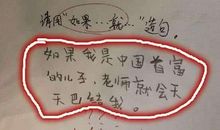 请用"如果…就…"造句。
如果我是中国首富
的儿子,老师就会天
天巴结我。